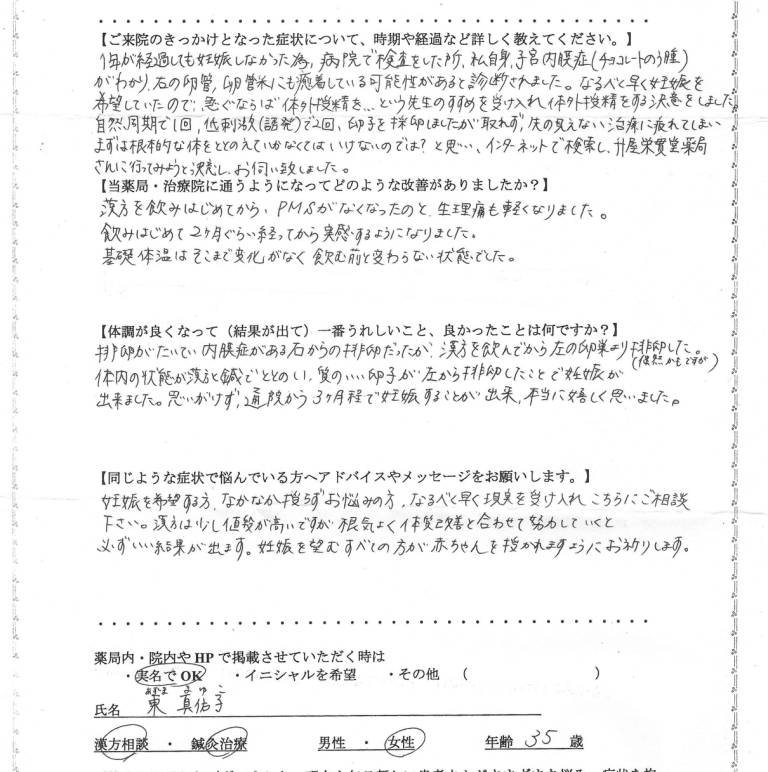 【ご来院のきっかけとなった症状について、時期や経過など詳しく教えてください。】
1年が経過しても妊娠しなかった為、病院で検査をした所、私自身、子宮内膜症(チョコレートのう腫)
がわかり、右の卵管、卵管采にも癒着している可能性があると診断されました。なるべく早く妊娠を
希望していたので、急ぐならば体外授精を…という先生のすすめを受け入れ体外授精をする決意をしました。
自然周期で1回、低刺激(誘発)で2回、卵子を採卵しましたが取れず、先の見えない治療に疲れてしまい
まずは根本的な体をととのえていかなくてはいけないのでは?と思い、インターネットで検索し、廾屋栄實堂薬局
さんに行ってみようと決意し、お伺い致しました。
【当薬局・治療院に通うようになってどのような改善がありましたか?】
漢方を飲みはじめてから、PMSがなくなったのと、生理痛も軽くなりました。
飲みはじめて2ヶ月ぐらい経ってから実感するようになりました。
基礎体温はそこまで変化がなく飲む前と変わらない状態でした。
【体調が良くなって(結果が出て)一番うれしいこと、良かったことは何ですか?】
排卵がたいてい内膜症がある右からの排卵だったが、漢方を飲んでから左の卵巣より排卵した。
(偶然かもですが)
体内の状態が漢方と鍼でととのい、質のいい卵子が左から排卵したことで妊娠が
出来ました。思いがけず、通院から3ヶ月程で妊娠することが出来、本当に嬉しく思いました。
【同じような症状で悩んでいる方へアドバイスやメッセージをお願いします。】
妊娠を希望する方、なかなか授らずお悩みの方、なるべく早く現実を受け入れ、こちらにご相談
下さい。漢方は少し値段が高いですが根気よく体質改善と合わせて努力していくと
必ずいい結果が出ます。妊娠を望むすべての方が赤ちゃんを授かれますようにお祈りします。
薬局内・院内やHPで掲載させていただく時は
・実名でOK ・イニシャルを希望 ・その他 ( )
あずま まゆこ
氏名 東 真佑子
漢方相談 ・ 鍼灸治療 男性 ・ 女性 年齢 35 歳